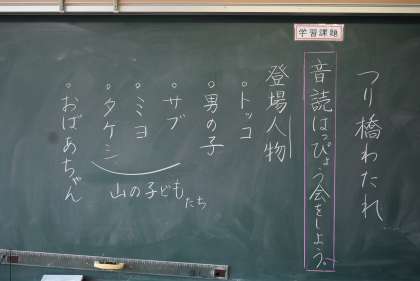 つり橋わたれ
学習課題
音読はっぴょう会をしよう。
登場人物
○トッコ
○男の子
○サブ
○ミヨ
○タケシ
山の子どもたち
○おばあちゃん